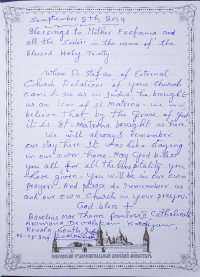 September 5th, 2019
Blessings to Mother Feofania and
all the Sisters in the name of the
Blessed Holy Trinity.
When Fr Stefan of External
Church Relations of your Church
came to see us in India he brought
us an Icon of St Matrona. We now
believe that by the Grace of God
it is St. Matrona brought us here
We will always remember
our stay here It was like staying
in our own home. May God bless
you all for all the hospitality you
have given. You will be in our own
prayers. And please do remember us
and our own Church in your prayers.
God bless +
Baselios Mar Thoma Paulose II Catholicos
Devalokam Kottayam,
Kerala, South India
ПОКРОВСКИЙ СТАВРОПИГИАЛЬНЫЙ ЖЕНСКИЙ МОНАСТЫРЬ